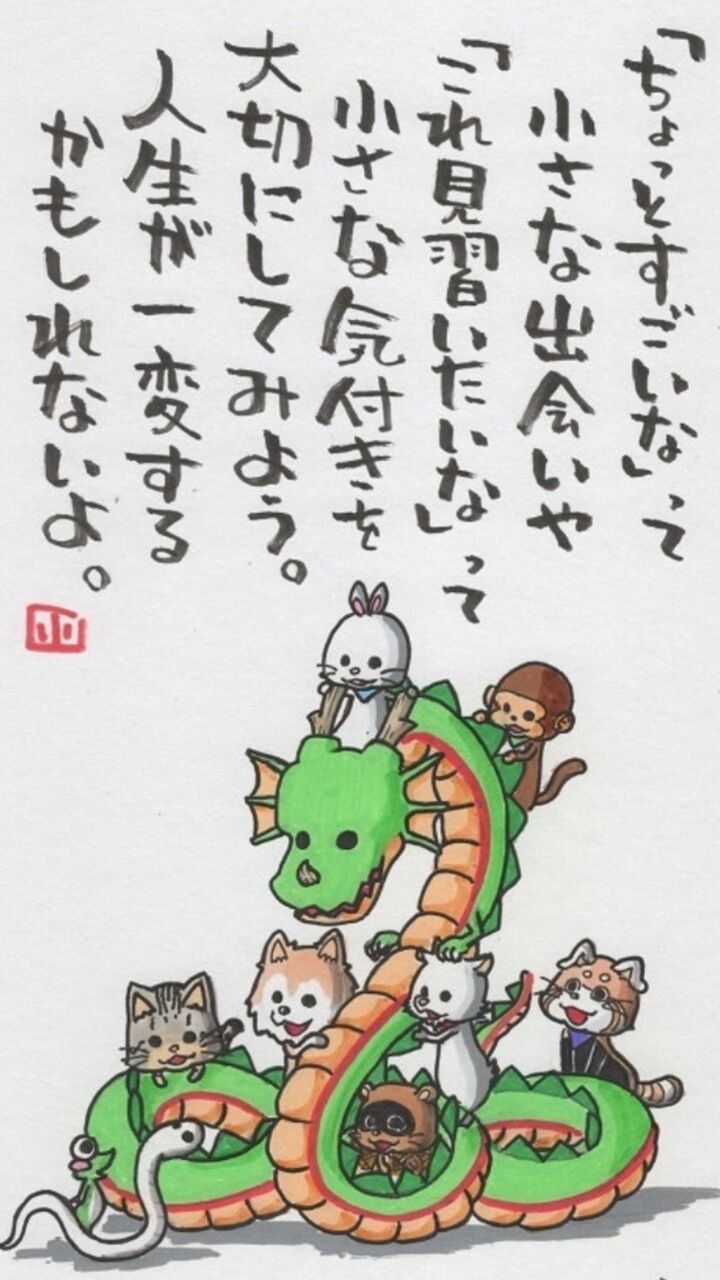 「ちょっとすごいな」って
小さな出会いや
「これ見習いたいな」って
小さな気付きを
大切にしてみよう。
人生が一変する
かもしれないよ。